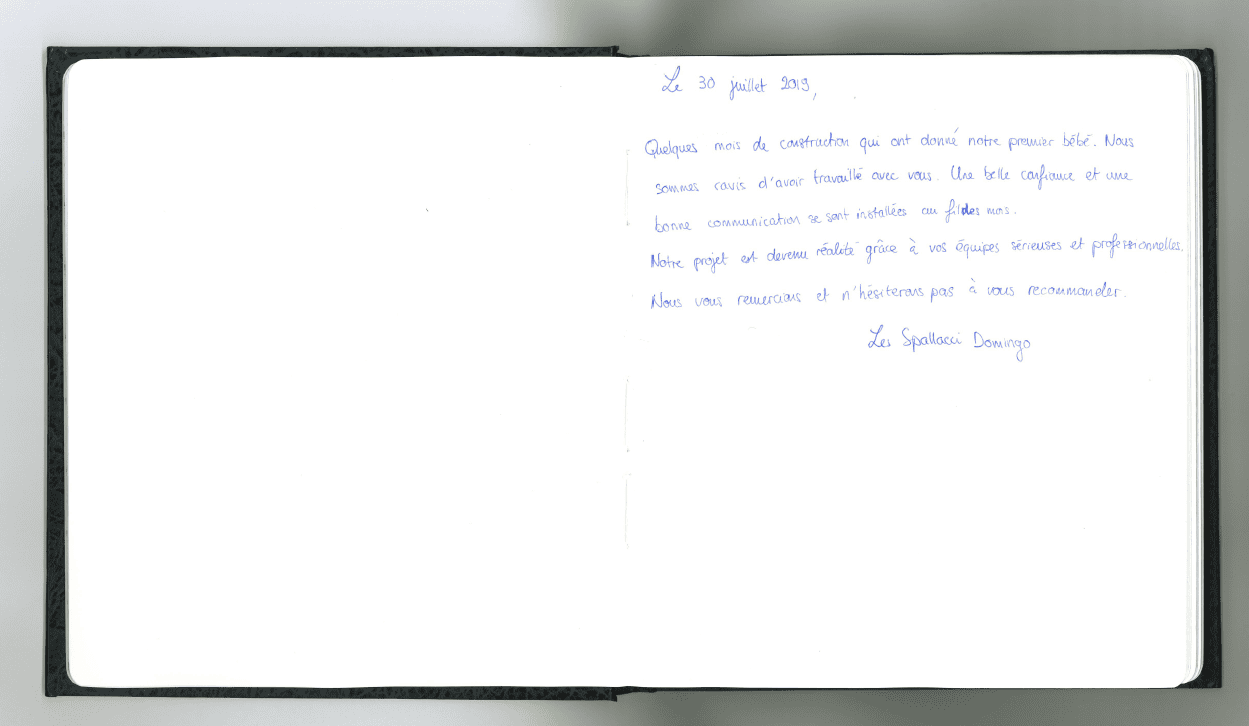 Le 30 juillet 2019,
Quelques mois de construction qui ont donné notre premier bébé. Nous
sommes ravis d'avoir travaillé avec vous. Une belle confiance et une
bonne communication se sont installées au fil des mois.
Notre projet est devenu réalité grâce à vos équipes sérieuses et professionnelles.
Nous vous remercions et n'hésiterons pas à vous recommander.
Les Spallacci Domingo